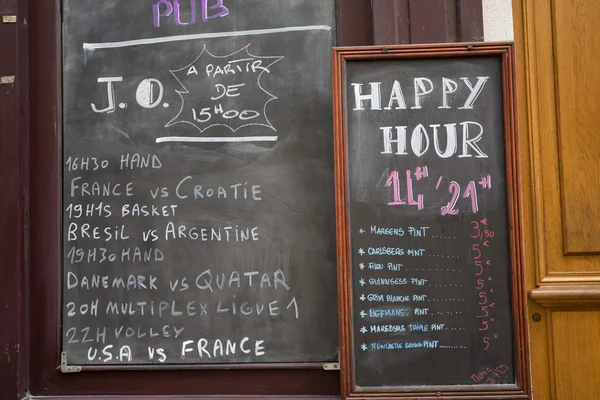 PUB
J.O.
A PARTIR
DE
15H00
16H30 HAND
FRANCE VS CROATIE
19H15 BASKET
BRESIL VS ARGENTINE
19H30 HAND
DANEMARK VS QUATAR
20H MULTIPLEX LIGUE 1
22H VOLLEY
U.S.A VS FRANCE
HAPPY
HOUR
14H '21H
* MARGENS PINT ...... 3,50€
* CARLSBERG PINT ...... 5€
* PINT ...... 5€
* GUINNSESS PINT ...... 5€
* GRIM BLANCHE PINT .... 5€
* PINT ...... 5€
* MAREDSOUS TRIPLE PINT .... 5€
* NEWCASTLE BROWN PINT ........ 5€